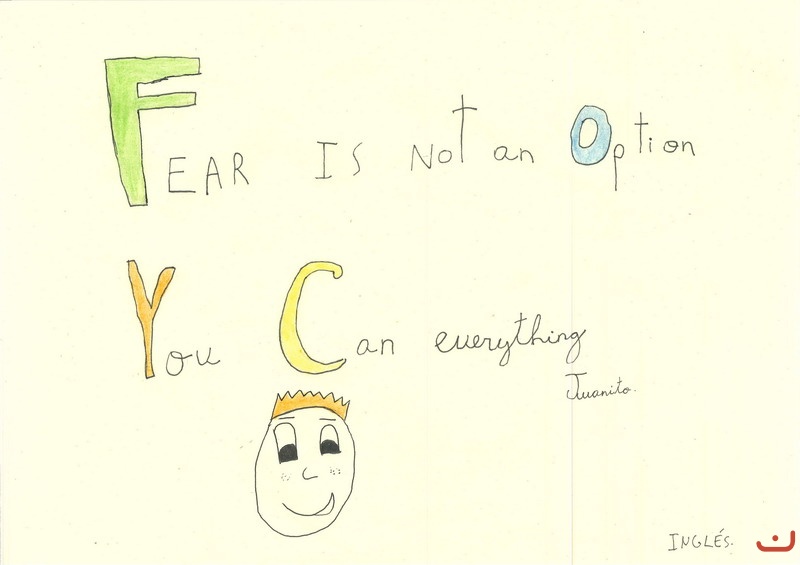 FEAR IS NoT an Option
You Can everything
Juanito.
INGLÉS.